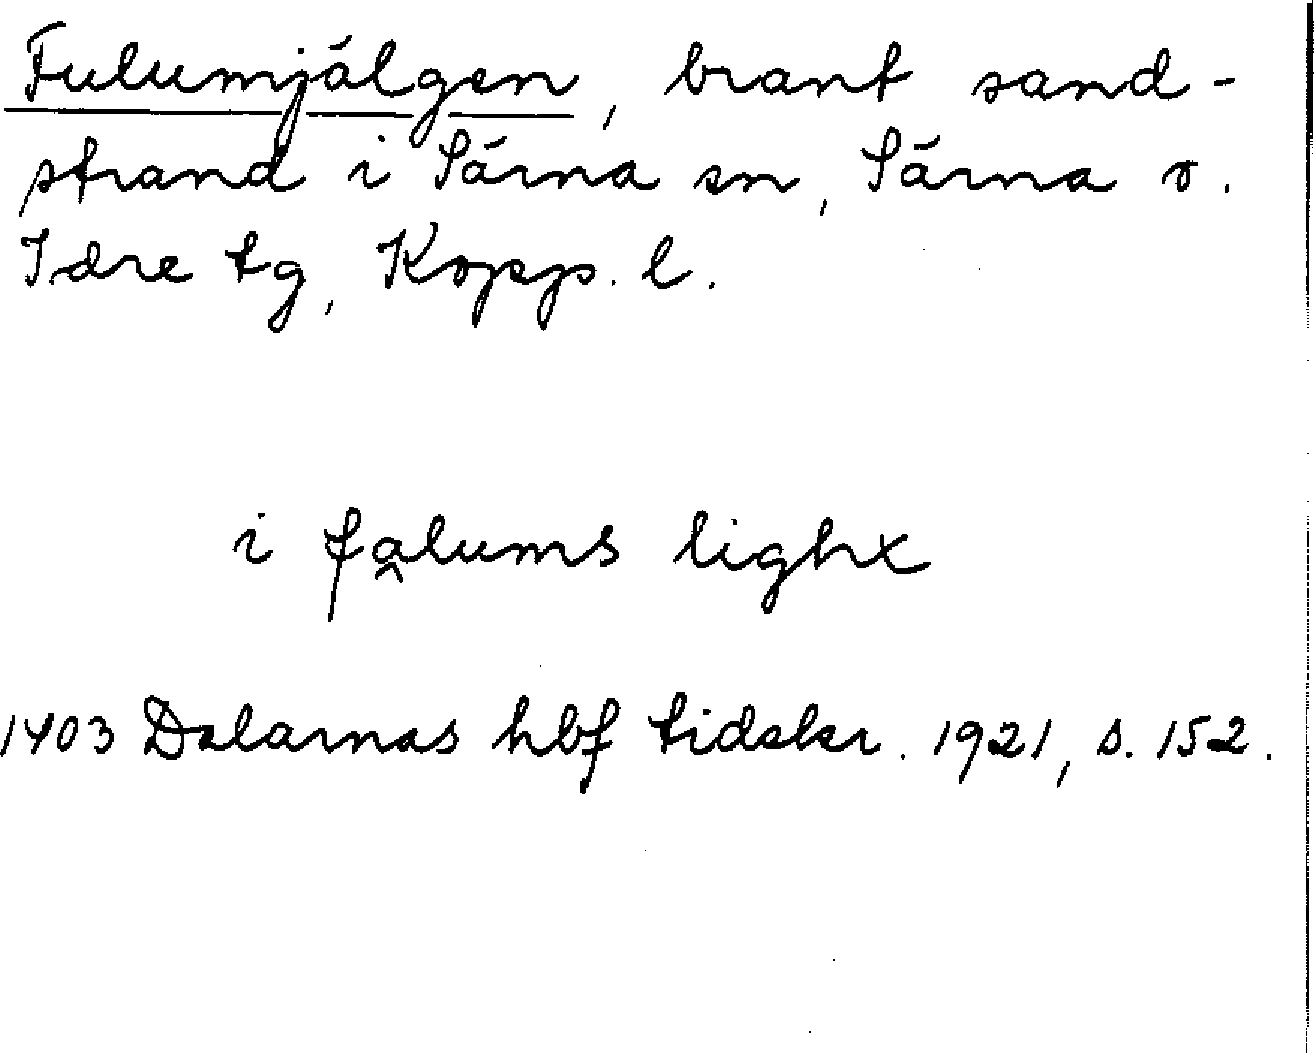 Fulumjälgen, brant sand-
strand i Särna sn, Särna o.
Idre tg, Kopp. l.
i fa̭lums lighx
1403 Dalarnas hbf tidskr. 1921, s. 152.